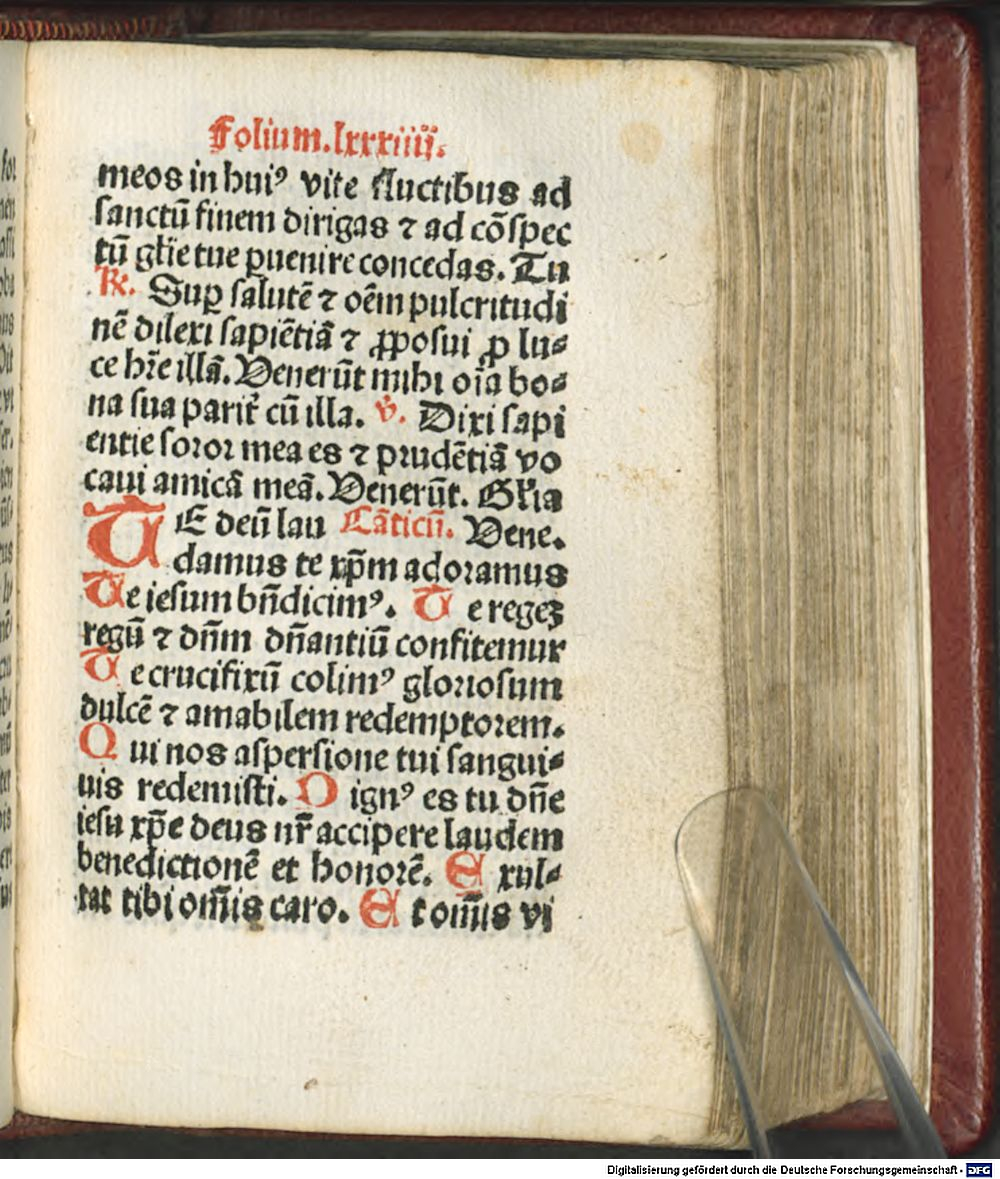 Folium.lxxxiiij.
meos in huiꝰ vite fluctibus ad
sanctū finem dirigas ⁊ ad cōspec
tū gl̄ie tue ꝑuenire concedas. Tu
℞. Suꝑ salutē ⁊ oēm pulcritudi
nē dilexi sapiētiā ⁊ ꝓposui ꝓ lu⸗
ce hr̄e illā. Venerūt mihi oīa bo⸗
na sua parit̄ cū illa. ℣. Dixi sapi
entie soror mea es ⁊ prudētiā vo
caui amicā meā. Venerūt. Gl̄ia
TE deū lau Cāticū. Vene.
damus te xp̄m adoramus
Te iesum bn̄dicimꝰ. Te regeꝫ
regū ⁊ dn̄m dn̄antiū confitemur
Te crucifixū colimꝰ gloriosum
dulcē ⁊ amabilem redemptorem.
Qui nos aspersione tui sangui⸗
uis redemisti. Dignꝰ es tu dn̄e
iesu xp̄e deus nr̄ accipere laudem
benedictionē et honorē. Exul⸗
tat tibi om̄is caro. Et om̄is vi
Digitalisierung gefördert durch die Deutsche Forschungsgemeinschaft - DFG